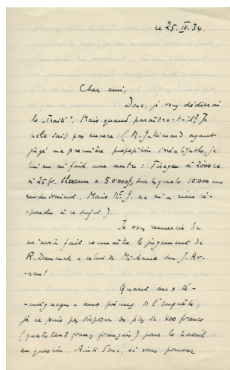 ce 25. IV. 34
Cher ami,
Donc, je vous dédierai
le "Traité". Mais quand paraîtra-t-il? Je
ne le sais pas encore (R. Gallimard ayant
jugé ma première proposition irréalisable, je
lui en ai fait une autre : Tirage à 2000 ex.
à 25 fr. = 50'000 f, sur lesquels 10'000 me
reviendraient. Mais M. G. ne m'a rien ré-
pondu à ce sujet).
Je vous remercie de
m'avoir fait connaître le jugement de
R. Daumal et celui de Michaux sur
Quant aux
de l'enquête,
je ne puis pas disposer de plus de 400 francs
(quatre cent francs français) pour le travail
en question. Ainsi donc, si vous pouvez